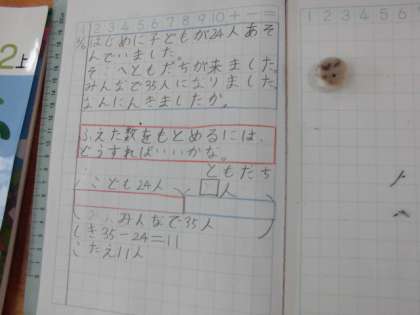 1 2 3 4 5 6 7 8 9 10 + - =
はじめに子どもが24人あそ
んでいました。
そこへともだちが来ました。
みんなで35人になりました。
なんにんきましたか。
ふえた数をもとめるには、
どうすればいいかな。
ともだち
こども24人
□人
なで35人
しき35-24=11
こたえ11人
2上
1 2 3 4 5 6